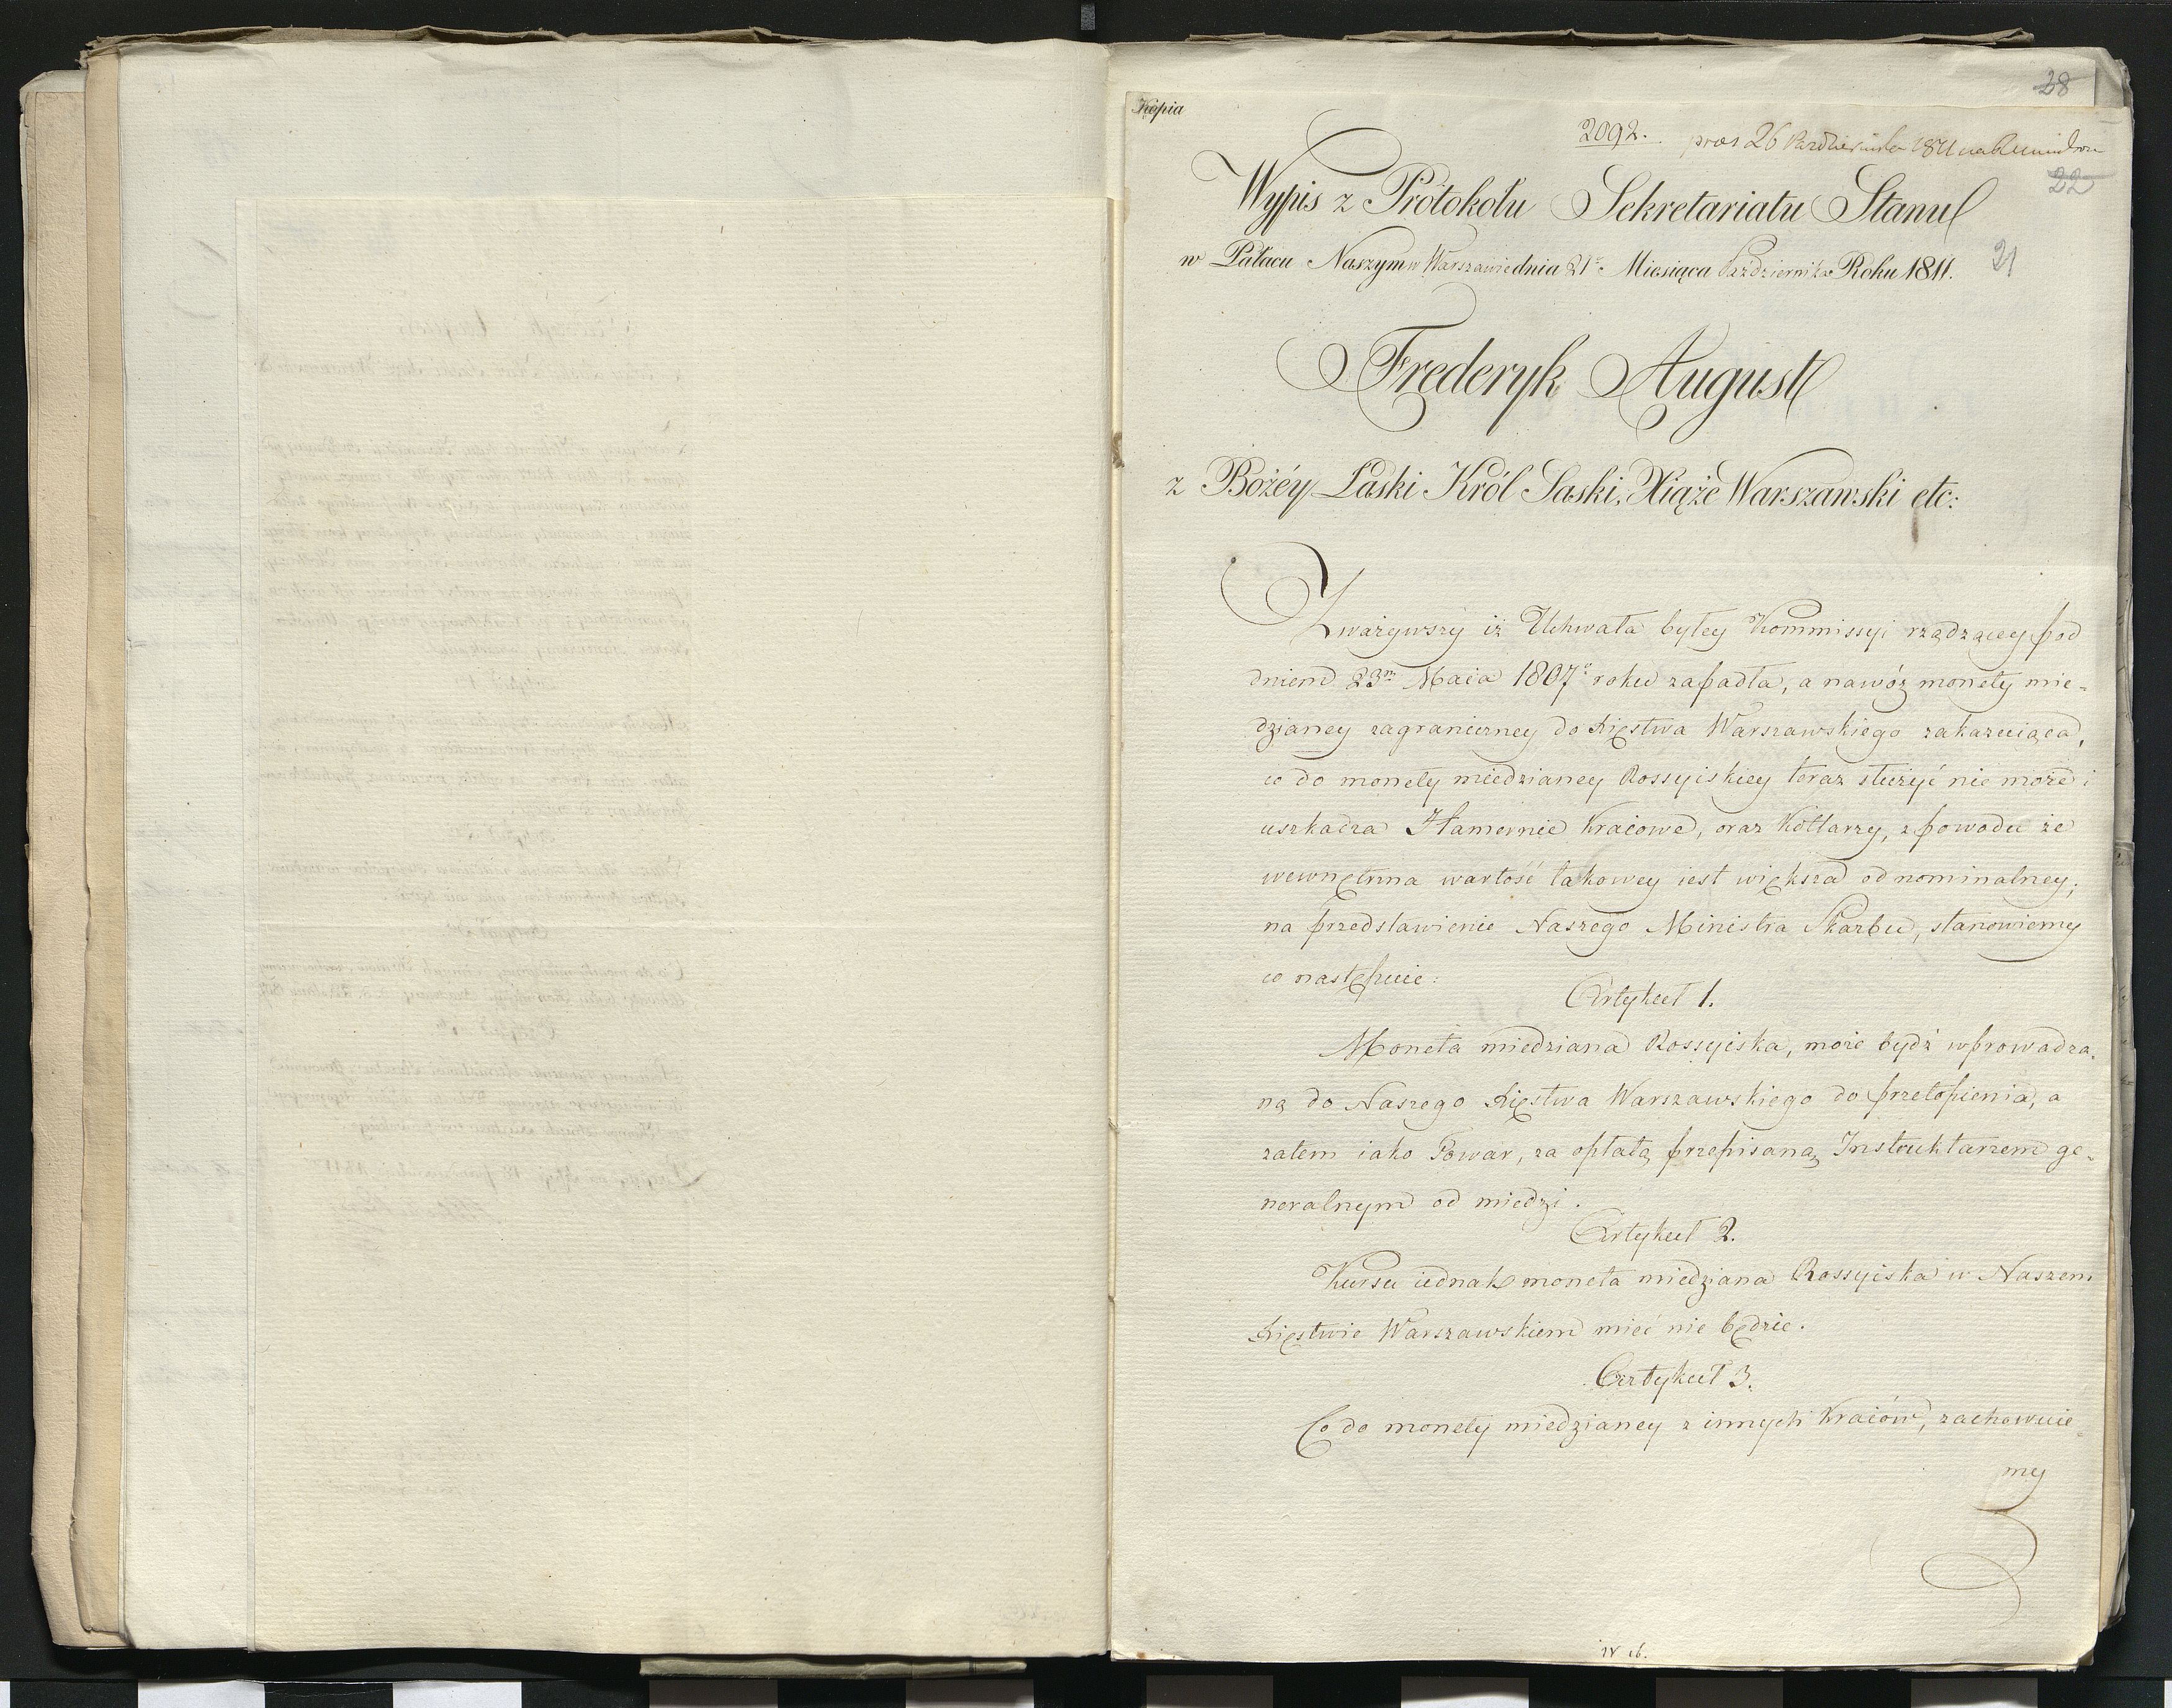 28
Kopia
2092. praes 26 Października 1811
22
Wypis z Protokołu Sekretariatu Stanu
w Pałacu Naszym w Warszawie dnia 21º Miesiąca Października Roku 1811.
21
Frederyk August
z Bożéy Łaski Król Saski, Xiąże Warszawski etc:
Zważywszy iż Uchwała byłey Kommissyi rządzącey pod
dniem 23m Maia 1807º roku zapadła, a nawóz monety mie-
dzianey zagraniczney do Xięstwa Warszawskiego zakazuiąca,
co do monety miedzianey Rossyiskiey teraz służyć nie może i
uszkadza Hamernie kraiowe, oraz Kotlarzy, z powodu że
wewnętrzna wartość takowey iest większa od nominalney;
na przedstawienie Naszego Ministra Skarbu, stanowiemy
co następuie:
Artykuł 1.
Moneta miedziana Rossyiska, może bydź wprowadza-
ną do Naszego Xięstwa Warszawskiego do przetopienia, a
zatem iako Towar, za opłatą przepisaną Instruktarzem ge-
neralnym od miedzi.
Artykuł 2.
Kursu iednak moneta miedziana Rossyiska w Naszem
Xięstwie Warszawskiem mieć nie będzie.
Artykuł 3.
Co do monety miedzianey z innych kraiów, zachowuie-
my